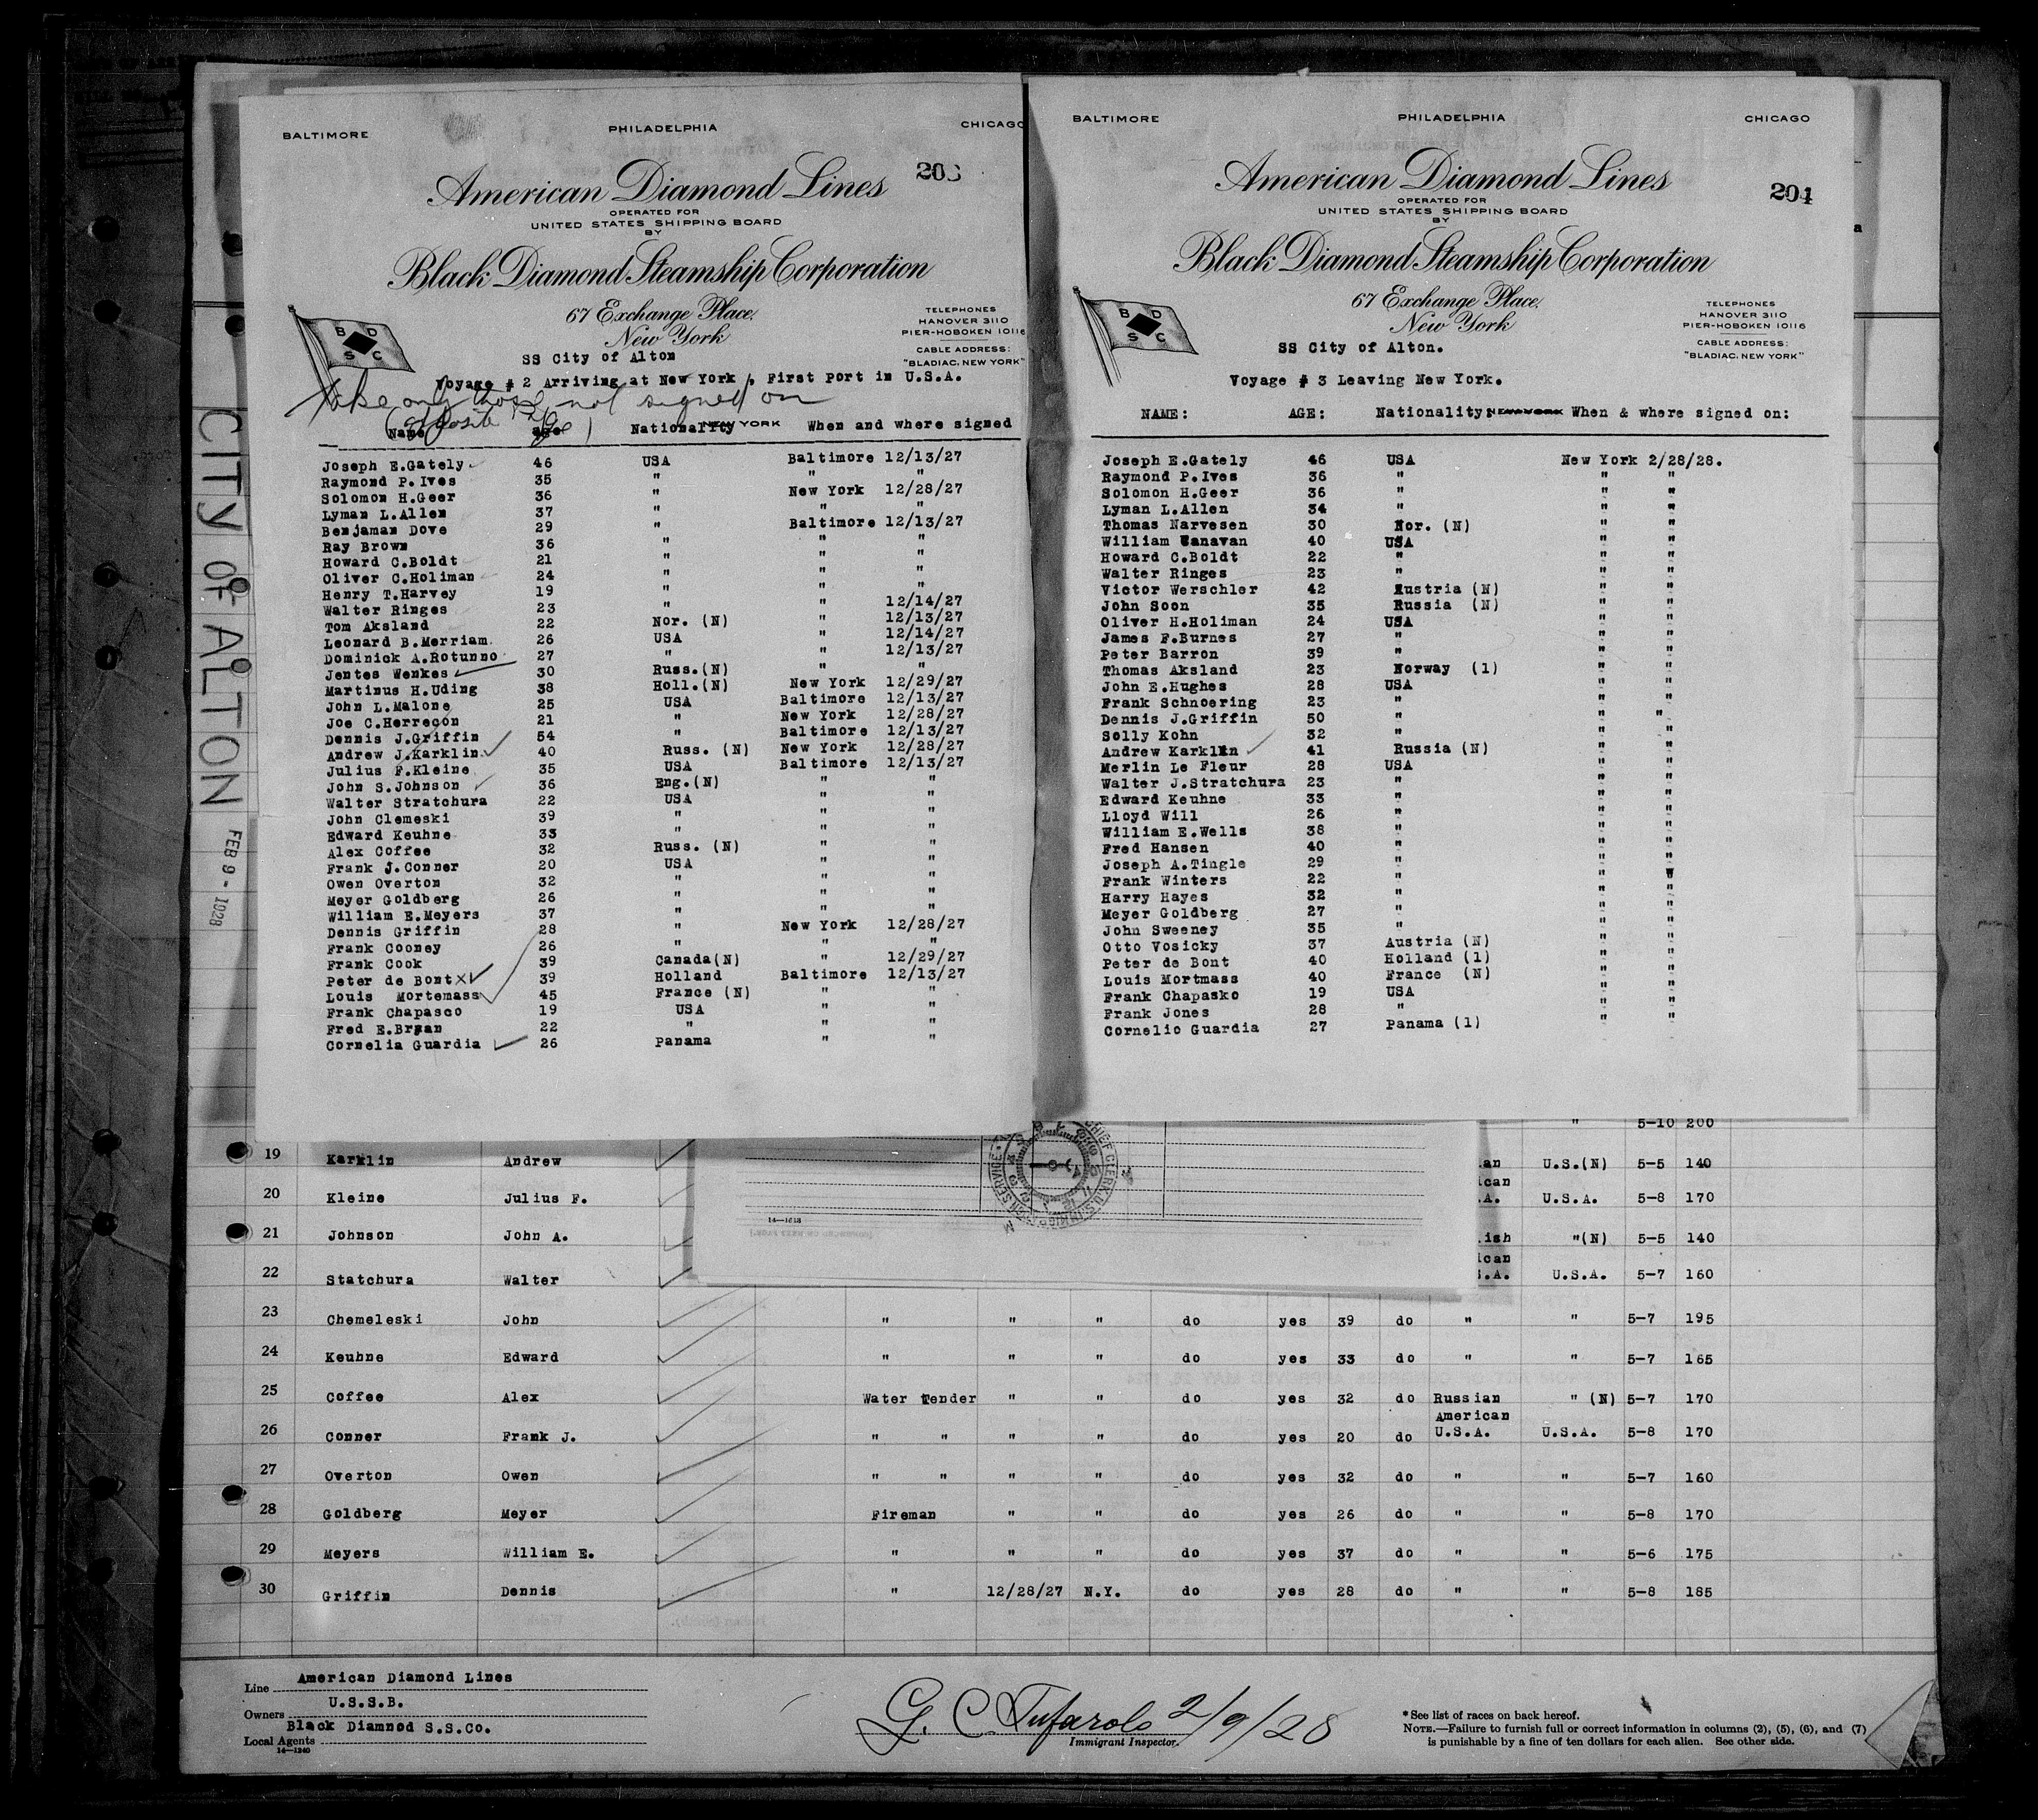 BALTIMORE PHILADELPHIA CHICAGO
American Diamond Lines
OPERATED FOR
UNITED STATES SHIPPING BOARD
BY
Black Diamond Steamship Corporation
67 Exchange Place,
New York
TELEPHONES
HANOVER 3110
PIER-HOBOKEN 10116
CABLE ADDRESS:
"BLADIAC, NEW YORK"
B D
S C
SS City of Alton
Voyage # 2 Arriving at New York , First Port in U.S.A.
take only those not signed on
(opposite page)
Name Age Nationality NEW YORK When and where signed
Joseph E.Gately 46 USA Baltimore 12/13/27
Raymond P. Ives 35 " " "
Solomon H.Geer 36 " New York 12/28/27
Lyman L.Allen 37 " " "
Benjaman Dove 29 " Baltimore 12/13/27
Ray Brown 36 " " "
Howard C.Boldt 21 " " "
Oliver C.Holiman 24 " " "
Henry T.Harvey 19 " " "
Walter Ringes 23 " " 12/14/27
Tom Aksland 22 Nor. (N) " 12/13/27
Leonard B.Merriam 26 USA " 12/14/27
Dominick A.Rotunno 27 " " 12/13/27
Jentes Wenkes 30 Russ.(N) " "
Martinus H.Uding 38 Holl.(N) New York 12/29/27
John L.Malone 25 USA Baltimore 12/13/27
Joe C.Herrecon 21 " New York 12/28/27
Dennis J.Griffin 54 " Baltimore 12/13/27
Andrew J.Karklin 40 Russ. (N) New York 12/28/27
Julius F.Kleine 35 USA Baltimore 12/13/27
John S.Johnson 36 Eng.(N) " "
Walter Stratchura 22 USA " "
John Clemeski 39 " " "
Edward Keuhne 33 " " "
Alex Coffee 32 Russ. (N) " "
Frank J.Conner 20 USA " "
Owen Overton 32 " " "
Meyer Goldberg 26 " " "
William E.Meyers 37 " " "
Dennis Griffin 28 " New York 12/28/27
Frank Cooney 26 " " "
Frank Cook 39 Canada(N) " 12/29/27
Peter de Bont 39 Holland Baltimore 12/13/27
Louis Mortemass 45 France (N) " "
Frank Chapasco 19 USA " "
Fred E.Brean 22 " " "
Cornelia Guardia 26 Panama " "
BALTIMORE PHILADELPHIA CHICAGO
204
American Diamond Lines
OPERATED FOR
UNITED STATES SHIPPING BOARD
BY
Black Diamond Steamship Corporation
67 Exchange Place,
New York
TELEPHONES
HANOVER 3110
PIER-HOBOKEN 10116
CABLE ADDRESS:
"BLADIAC, NEW YORK"
B D
S C
SS City of Alton.
Voyage # 3 Leaving New York.
NAME: AGE: Nationality: NEW YORK When & where signed on:
Joseph E.Gately 46 USA New York 2/28/28.
Raymond P.Ives 36 " " "
Solomon H.Geer 36 " " "
Lyman L.Allen 34 " " "
Thomas Narvesen 30 Nor. (N) " "
William Canavan 40 USA " "
Howard C.Boldt 22 " " "
Walter Ringes 23 " " "
Victor Werschler 42 Austria (N) " "
John Soon 35 Russia (N) " "
Oliver H.Holiman 24 USA " "
James F.Burnes 27 " " "
Peter Barron 39 " " "
Thomas Aksland 23 Norway (1) " "
John E.Hughes 28 USA " "
Frank Schnoering 23 " " "
Dennis J.Griffin 50 " " "
Solly Kohn 32 " " "
Andrew Karklin 41 Russia (N) " "
Merlin Le Fleur 28 USA " "
Walter J.Stratchura 23 " " "
Edward Keuhne 33 " " "
Lloyd Will 26 " " "
William E.Wells 38 " " "
Fred Hansen 40 " " "
Joseph A.Tingle 29 " " "
Frank Winters 22 " " "
Harry Hayes 32 " " "
Meyer Goldberg 27 " " "
John Sweeney 35 " " "
Otto Vosicky 37 Austria (N) " "
Peter de Bont 40 Holland (1) " "
Louis Mortmass 40 France (N) " "
Frank Chapasko 19 USA " "
Frank Jones 28 " " "
Cornelio Guardia 27 Panama (1) " "
CITY OF ALTON
FEB 9 - 1928
" 5-10 200
19 Karklin Andrew U.S.(N) 5-5 140
20 Kleine Julius F. U.S.A. 5-8 170
21 Johnson John A. "(N) 5-5 140
22 Statchura Walter U.S.A. 5-7 160
23 Chemeleski John " " " do yes 39 do " " 5-7 195
24 Keuhne Edward " " " do yes 33 do " " 5-7 165
25 Coffee Alex Water Tender " " do yes 32 do Russian " (N) 5-7 170
American
26 Conner Frank J. " " " " do yes 20 do U.S.A. U.S.A. 5-8 170
27 Overton Owen " " " " do yes 32 do " " 5-7 160
28 Goldberg Meyer Fireman " " do yes 26 do " " 5-8 170
29 Meyers William E. " " " do yes 37 do " " 5-6 175
30 Griffin Dennis " 12/28/27 N.Y. do yes 28 do " " 5-8 185
Line American Diamond Lines
Owners U.S.S.B.
Local Agents Black Diamnod S.S.Co.
14—1240
G. C. Tufarolo 2/9/28
Immigrant Inspector.
* See list of races on back hereof.
NOTE.—Failure to furnish full or correct information in columns (2), (5), (6), and (7)
is punishable by a fine of ten dollars for each alien. See other side.